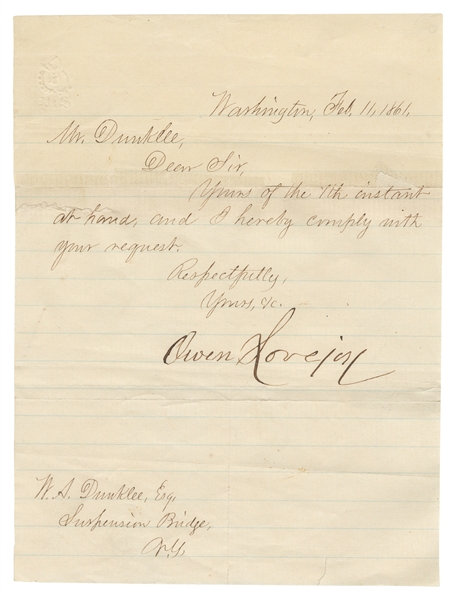 Washington, Feb. 11, 1861.
Mr. Dunklee,
Dear Sir,
Yours of the 7th instant
at hand, and I hereby comply with
your request.
Respectfully,
Yours, &c.
Owen Lovejoy
W. S. Dunklee, Esq,
Suspension Bridge,
N.Y.